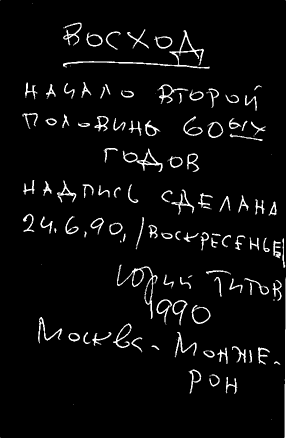 ВОСХОД
НАЧАЛО ВТОРОЙ
ПОЛОВИНЫ 60ЫХ
ГОДОВ
НАДПИСЬ СДЕЛАНА
24.6.90, /ВОСКРЕСЕНЬЕ/
Юрий ТИТОВ
1990
МОСКВА - МОНЖЕ-
РОН